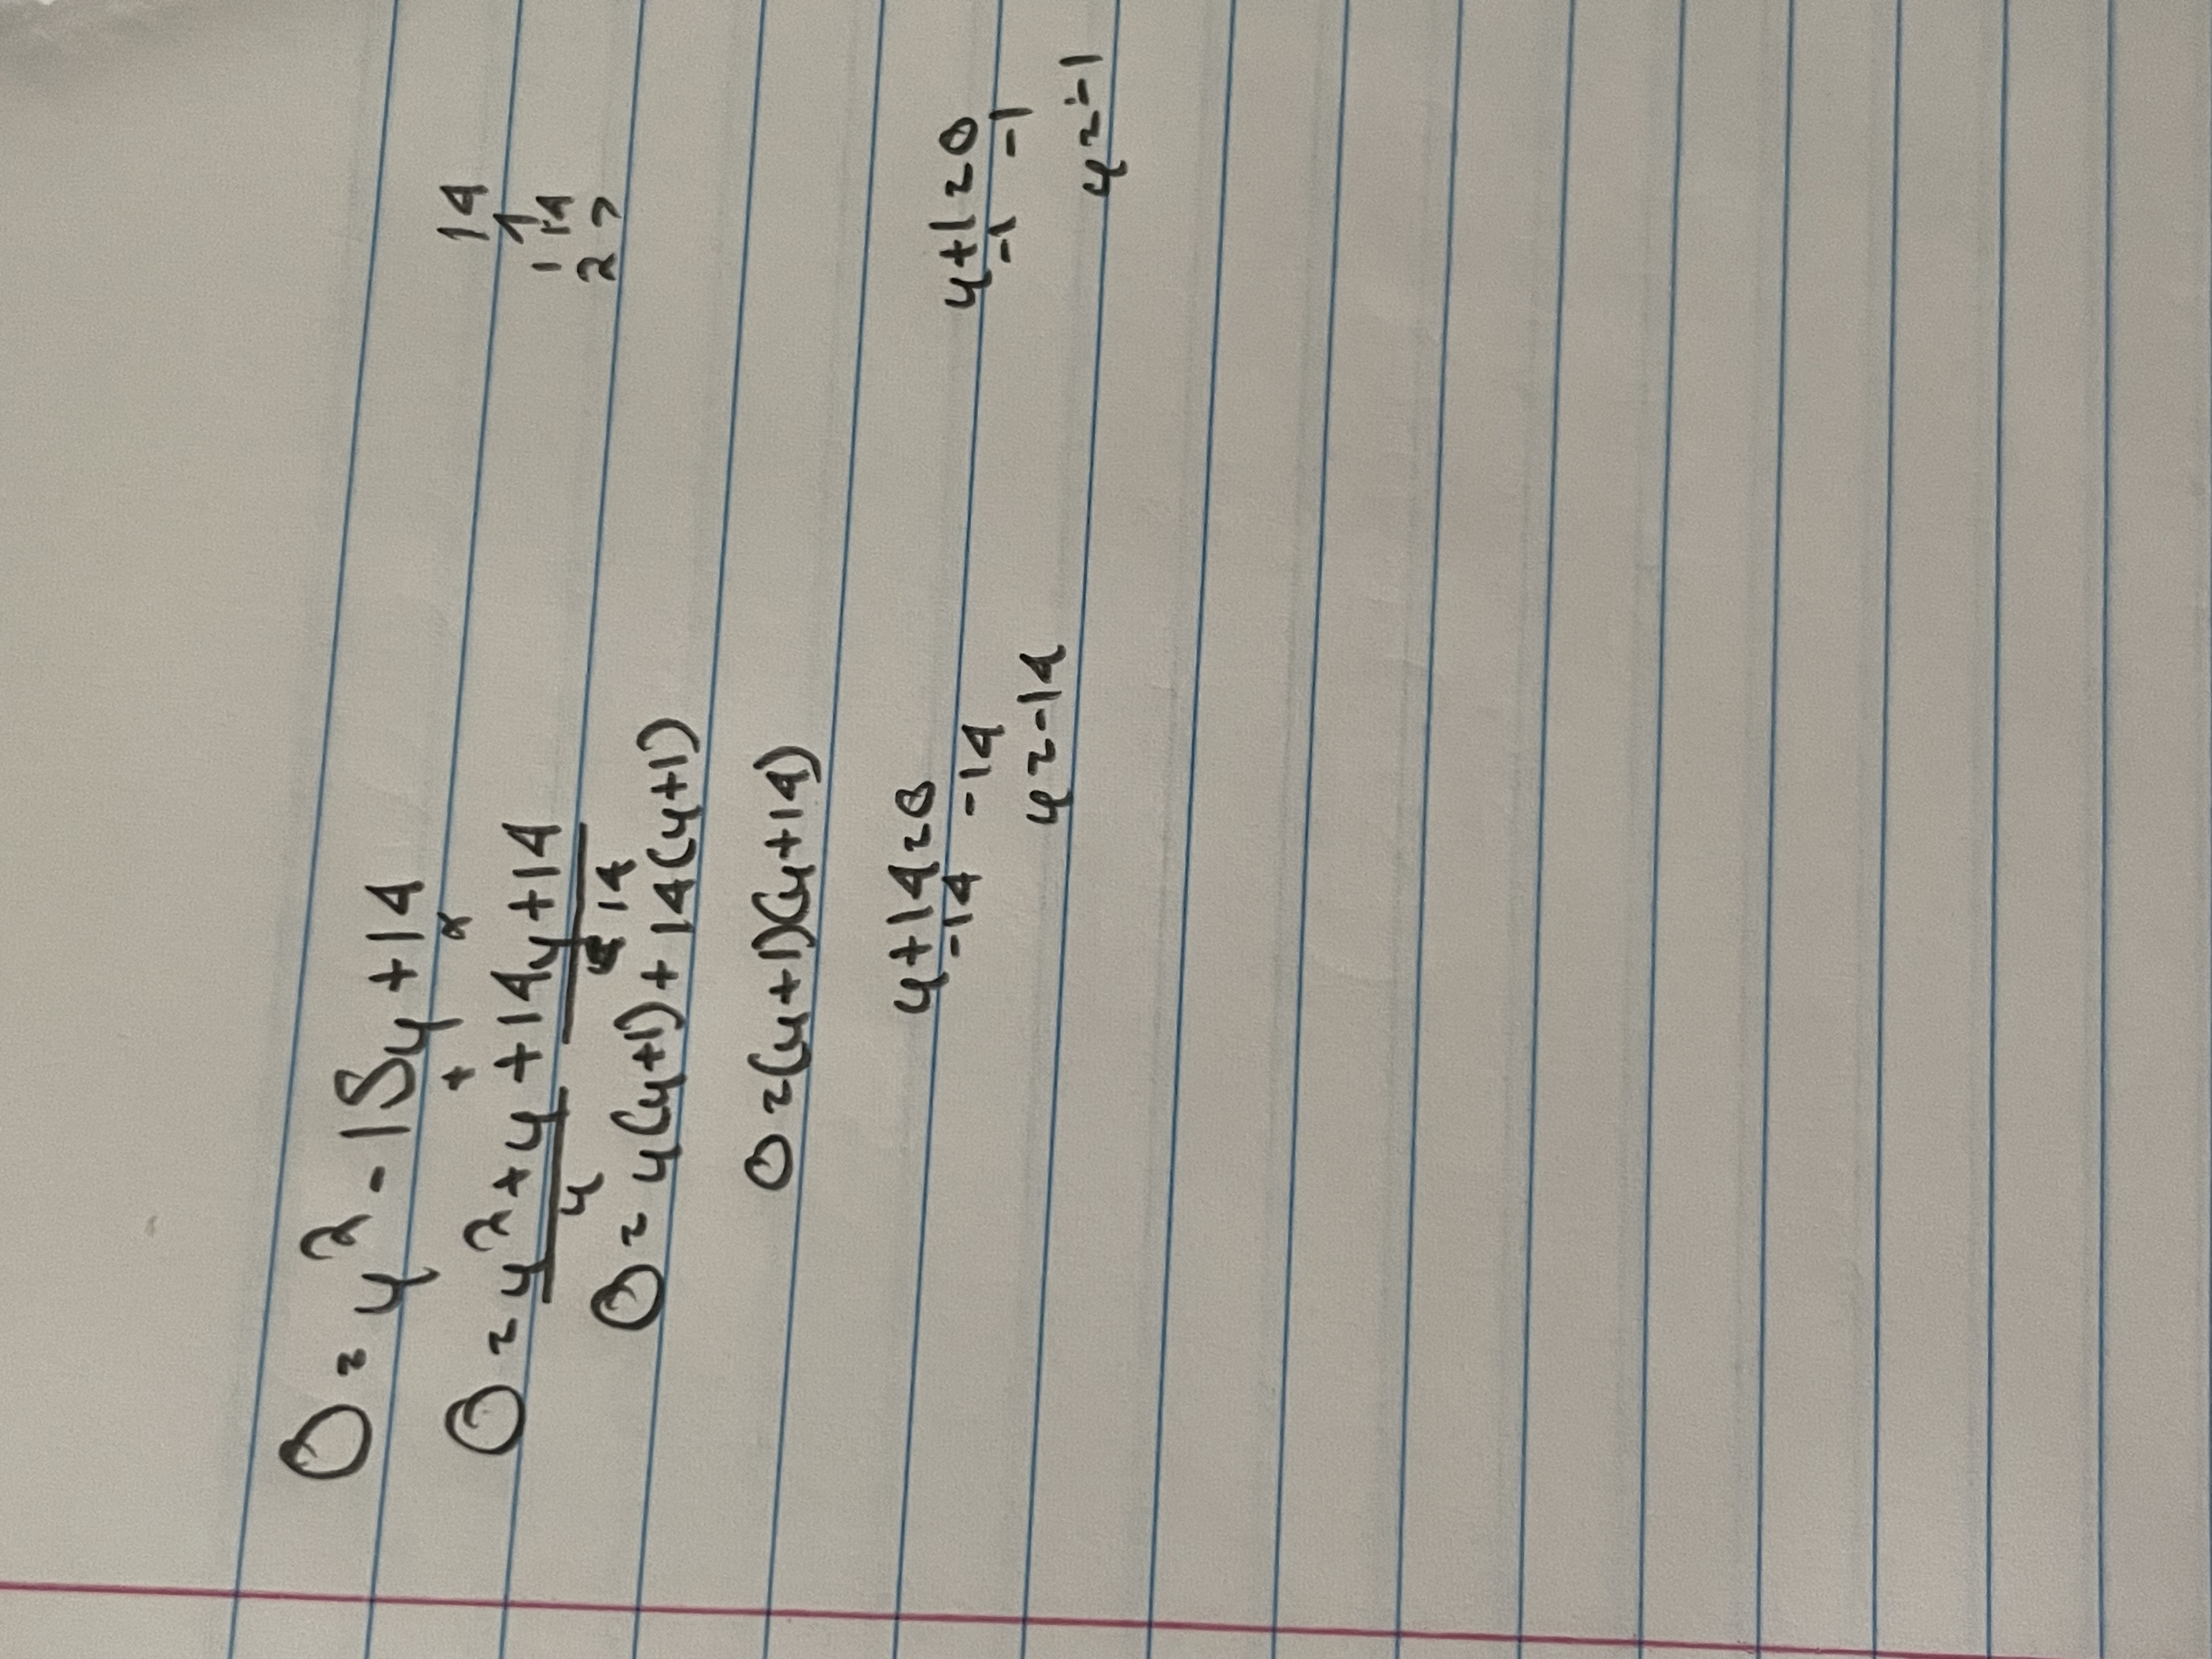 0 = y² - 15y + 14
+ x
14
1 14
2 7
0 = y² + y + 14y + 14
y 14
0 = y(y+1) + 14(y+1)
0 = (y+1)(y+14)
y+14=0
-14 -14
y=-14
y+1=0
-1 -1
y=-1